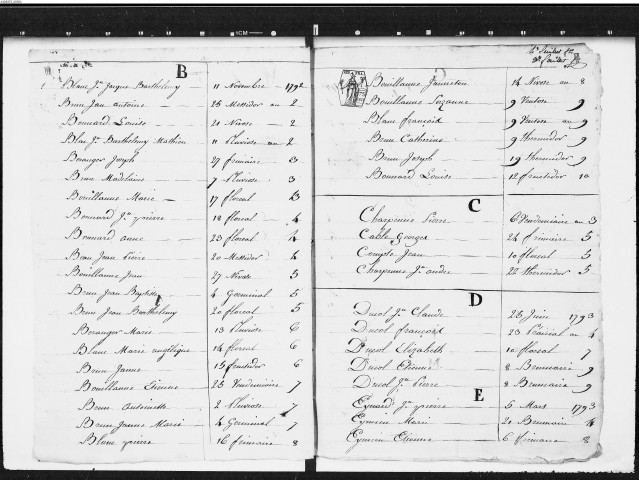 B
Blanc Jn Jacques Barthelemy — 11 Novembre — 1792
Brun Jean antoine — 25 Messidor an 2
Bonnard Louise — 21 Nivose — 2
Blanc Jn Barthelemy Mathieu — 11 Pluviose an 2
Beranger Joseph — 27 frimaire 3
Brun Madelaine — 7 Pluviose 3
Bouillanne Marie — 17 floreal 3
Bonnard Jn pierre — 18 floreal — 4
Bonnard anne — 23 floreal 4
Brun Jean Pierre — 20 Messidor 4
Bouillanne Jean — 27 Nivose 5
Brun Jean Baptiste — 4 Germinal 5
Brun Jean Barthelemy — 20 floreal 5
Beranger Marie — 13 Pluviose 6
Blanc Marie angélique — 14 floreal 6
Brun Jeanne — 15 fructidor 6
Bouillanne Etienne — 25 Vendemiaire 7
Brun Antoinette — 2 Pluviose 7
Brun Jeanne Marie — 4 Germinal 7
Blanc pierre — 16 frimaire 8
Bouillanne — 14 Nivose an 8
Bouillanne Suzanne — 9 Ventose 9
Blanc françois — 9 Ventose an 9
Brun Catherine — 9 thermidor 9
Brun Joseph — 19 thermidor 9
Bonnard Louise — 12 fructidor 10
C
Charpenne Pierre — 6 Vendemiaire an 3
Catle George — 24 frimaire 5
Compte Jean — 10 floreal 5
Charpenne Jn andré — 22 thermidor 5
D
Ducol Jn Claude — 23 Juin 1793
Ducol françois — 23 Prairial an 4
Ducol Elizabeth — 10 floreal 7
Ducol Etienne — 8 Brumaire 9
Ducol Jn Pierre — 8 Brumaire 9
E
Eymard Jn pierre — 5 Mars 1793
Eymieu Marie — 21 Brumaire 4
Eymieu Etienne — 6 frimaire 8